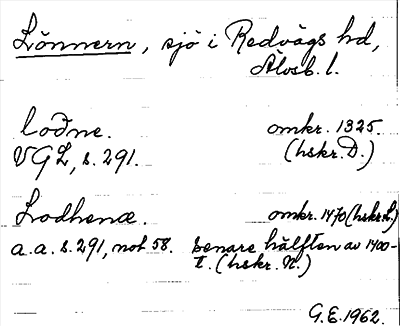 Lönnern, sjö i Redvägs hd,
Älvsb. l.
loðne. omkr. 1325.
VGL, s. 291. (hskr. D.)
Lodhenæ. omkr. 1470 (hskr. L)
a.a. s. 291, not 58. senare hälften av 1400-
t. (hskr. N.)
G.E. 1962.